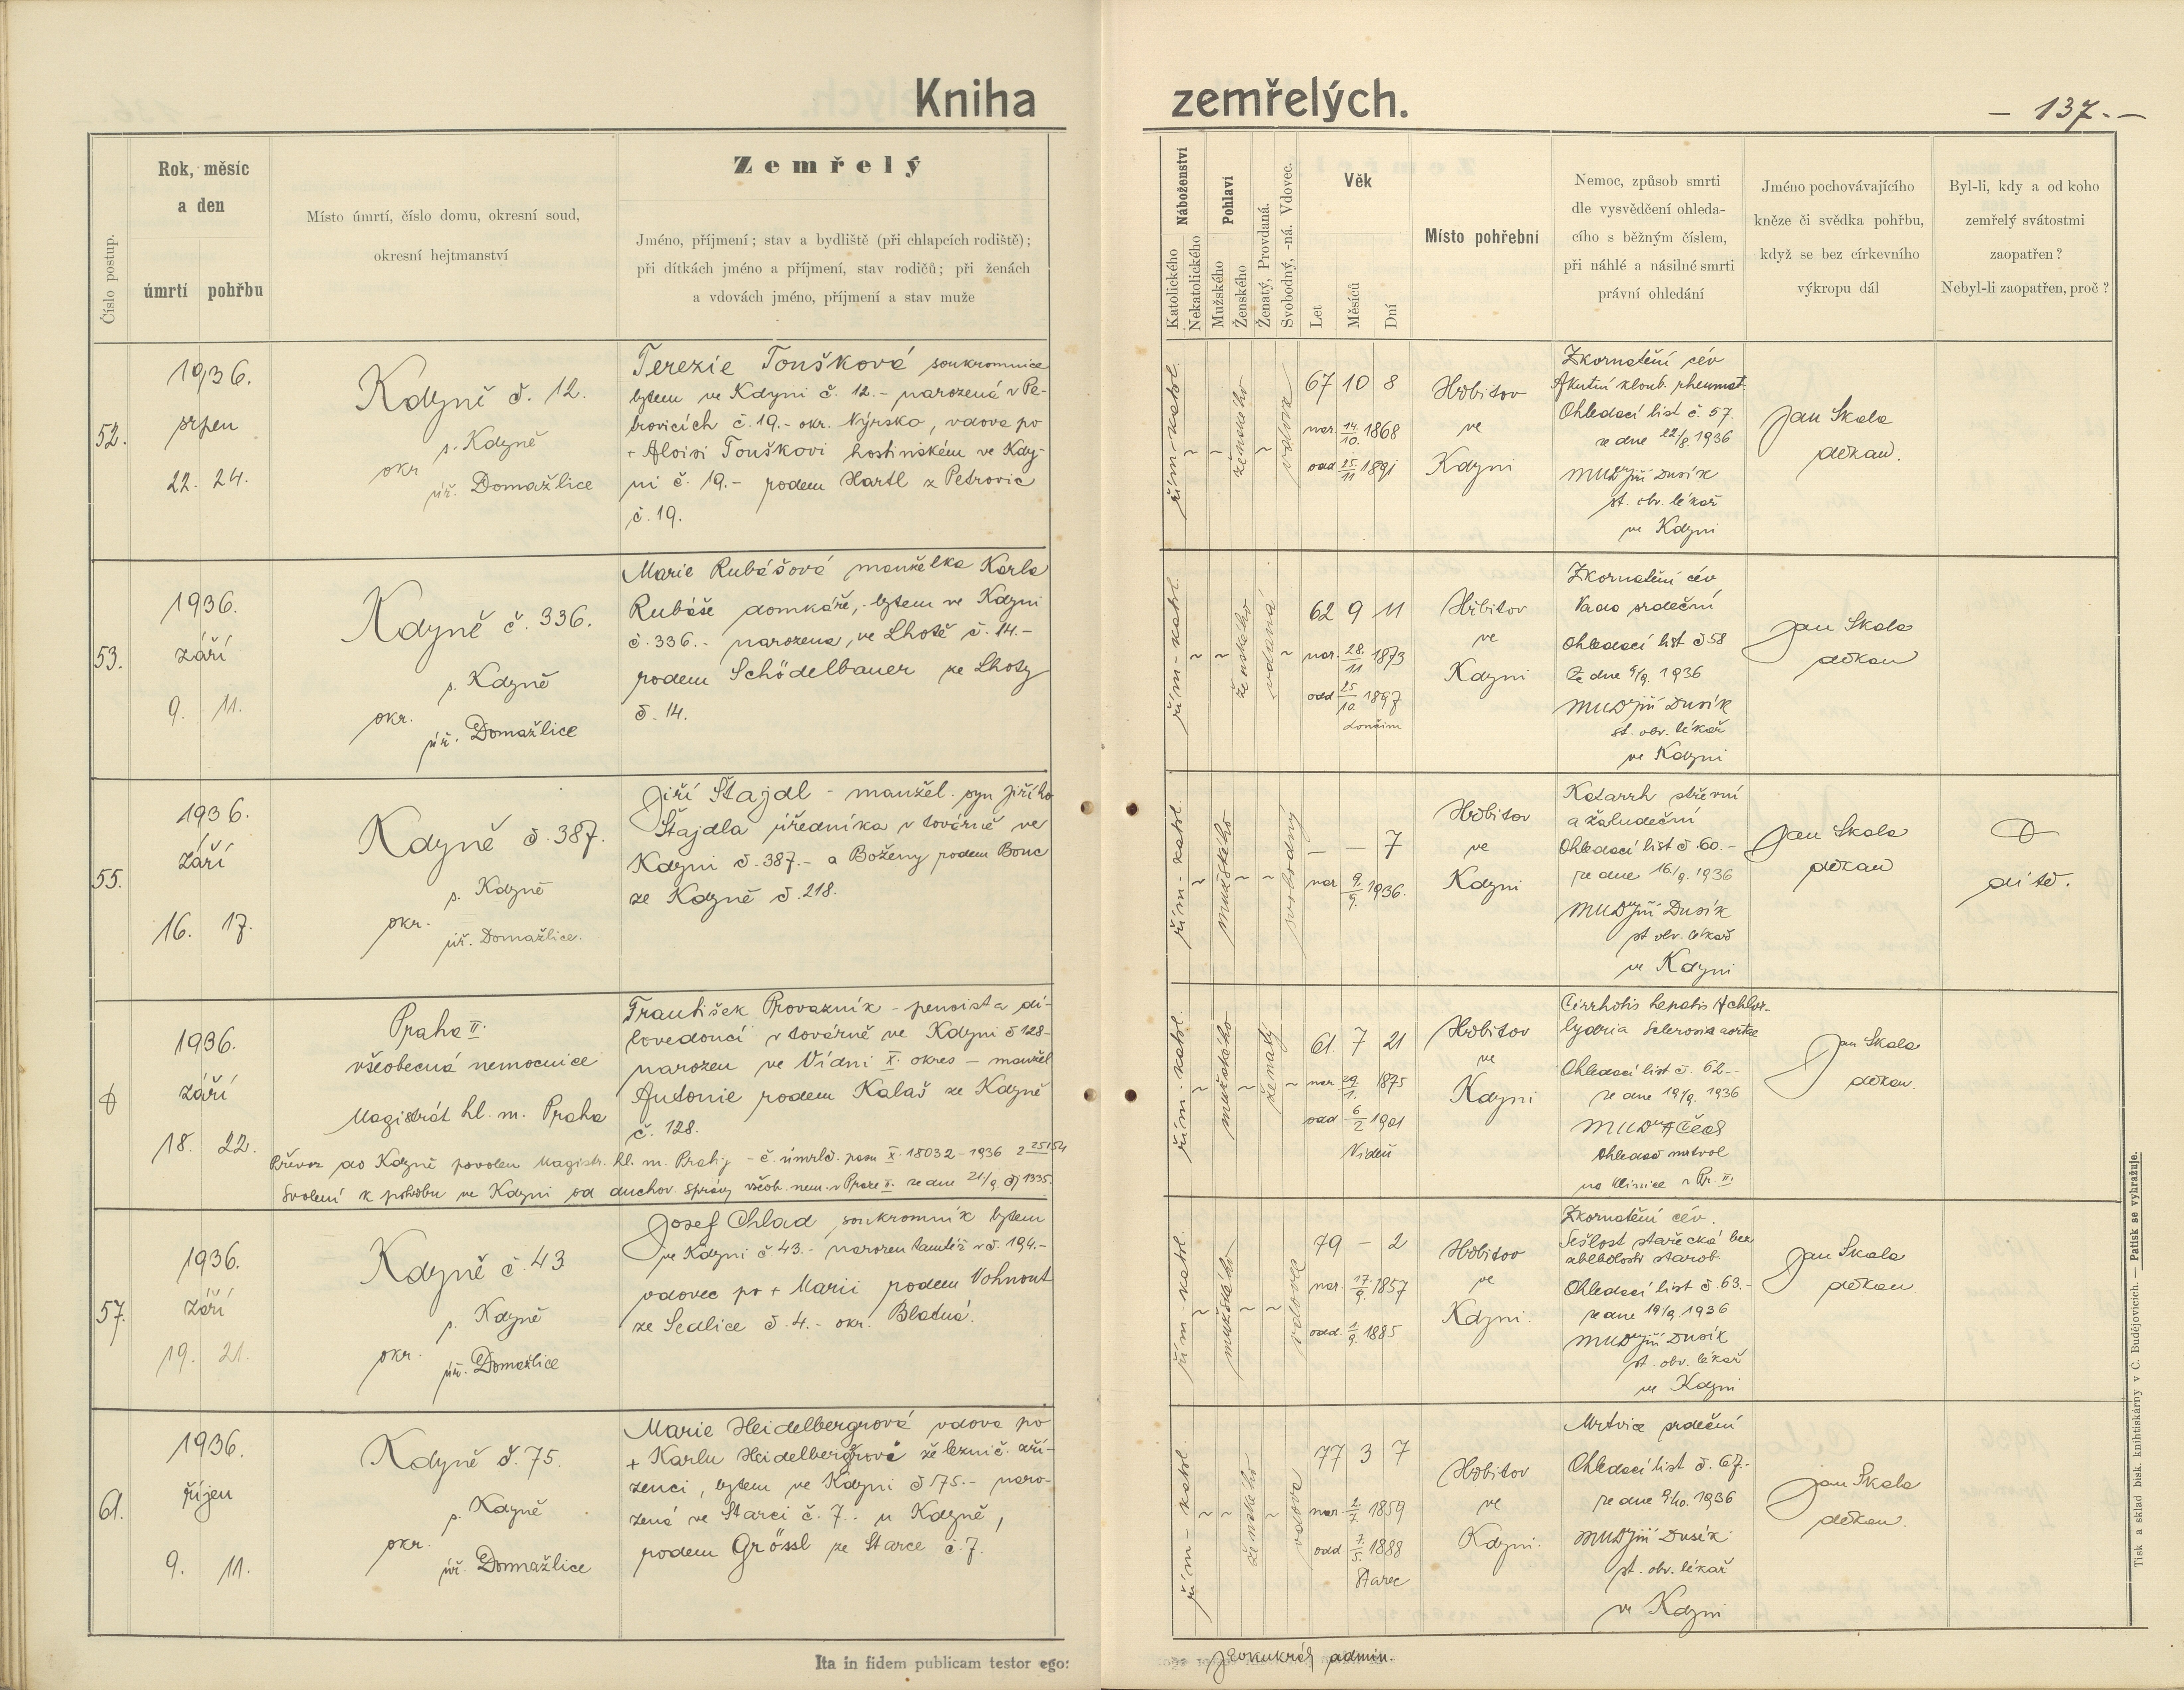 Kniha zemřelých.
– 137.–
Číslo postup.
Rok, měsíc
a den
úmrtí pohřbu
Místo úmrtí, číslo domu, okresní soud,
okresní hejtmanství
Zemřelý
Jméno, příjmení; stav a bydliště (při chlapcích rodiště);
při dítkách jméno a příjmení, stav rodičů; při ženách
a vdovách jméno, příjmení a stav muže
Náboženství
Katolického
Nekatolického
Pohlaví
Mužského
Ženského
Ženatý, Provdaná.
Svobodný, -ná. Vdovec.
Věk
Let
Měsíců
Dní
Místo pohřební
Nemoc, způsob smrti
dle vysvědčení ohleda-
cího s běžným číslem,
při náhlé a násilné smrti
právní ohledání
Jméno pochovávajícího
kněze či svědka pohřbu,
když se bez církevního
výkropu dál
Byl-li, kdy a od koho
zemřelý svátostmi
zaopatřen?
Nebyl-li zaopatřen, proč?
52.
1936.
srpen
22. 24.
Kdyně č. 12.
s. Kdyně
okr.
úř. Domažlice
Terezie Toušková soukromnice
bytem ve Kdyni č. 12.- narozená v Pe-
trovicích č. 19.- okr. Nýrsko, vdova po
+ Aloisi Touškovi hostinském ve Kdy-
ni č. 19.- rodem Hartl z Petrovic
č. 19.
řím-katol.
ženského
vdova
67 10 8
nar. 14/10. 1868
odd 25/11 1891
Hřbitov
ve
Kdyni
Zkornatění cév
Akutní kloub. rheumat.
Ohledací list č. 57.
ze dne 22/8. 1936
MUDr Jiří Dusík
st. obv. lékař
ve Kdyni
Jan Skala
děkan.
53.
1936.
září
9. 11.
Kdyně č. 336.
s. Kdyně
okr.
úř. Domažlice
Marie Rubášová manželka Karla
Rubáše domkáře, bytem ve Kdyni
č. 336.- narozena, ve Lhotě č. 14.-
rodem Schödelbauer ze Lhoty
č. 14.
řím-katol.
ženského
vdaná
62 9 11
nar. 28./11 1873
odd 25/10. 1897
Loučim
Hřbitov
ve
Kdyni
Zkornatění cév
Vada srdeční
Ohledací list č 58
Ze dne 9/9. 1936
MUDr Jiří Dusík
st. obv. lékař
ve Kdyni
Jan Skala
děkan
55.
1936.
září
16. 17.
Kdyně č. 387.
s. Kdyně
okr.
úř. Domažlice.
Jiří Štajdl - manžel. syn Jiřího
Štajdla úředníka v továrně ve
Kdyni č. 387.- a Boženy rodem Bouc
ze Kdyně č. 218.
řím-katol.
mužského
svobodný
– – 7
nar 9./9. 1936.
Hřbitov
ve
Kdyni
Katarrh střevní
a žaludeční
Ohledací list č. 60.-
ze dne 16./9. 1936
MUDr Jiří Dusík
st obv. lékař
ve Kdyni
Jan Skala
děkan
dítě.
1936.
září
18. 22.
Praha II.
všeobecná nemocnice
Magistrát hl. m. Praha
František Provazník - pensista dí-
lovedoucí v továrně ve Kdyni č 128-
narozen ve Vídni X. okres - manžel
Antonie rodem Kalaš ze Kdyně
č. 128.
Převoz do Kdyně povolen Magistr. hl. m. Prahy - č. úmrlč. pasu X. 18032-1936
Svolení k pohřbu ve Kdyni od duchov. správy všeob. nem. v Praze II. ze dne 21/9 čj 1335.
řím-katol.
mužského
ženatý
61. 7 21
nar 29/1. 1875
odd 6/2 1901
Vídeň
Hřbitov
ve
Kdyni
Cirrhotis hepatis Achlor-
hydria Sclerosis aortae
Ohledací list č. 62.-
ze dne 19/9. 1936
ohledač mrtvol
na klinice v Pr. II.
Jan Skala
děkan.
57.
1936.
září
19. 21.
Kdyně č. 43
s. Kdyně
okr.
úř. Domažlice
Josef Chlad soukromník bytem
ve Kdyni č 43.- narozen tamtéž v č. 194.-
vdovec po + Marii rodem Vohnout
ze Sedlice č. 4.- okr. Blatná.
řím-katol.
mužského
vdovec
79 – 2
nar. 17./9. 1857
odd. 1/9. 1885
Hřbitov
ve
Kdyni.
Zkornatění cév.
Sešlost stařecká bez
zblbělosti starob
Ohledací list č. 63.-
ze dne 19/9 1936
MUDr Jiří Dusík
st. obv. lékař
ve Kdyni
Jan Skala
děkan.
61.
1936.
říjen
9. 11.
Kdyně č. 75.
s. Kdyně
okr.
úř. Domažlice
Marie Heidelbergrová vdova po
+ Karlu Heidelbergrovi železnič. zří-
zenci, bytem ve Kdyni č 75.- naro-
zená ve Starci č. 7.. u Kdyně,
rodem Grössl ze Starce č. 7.
řím-katol.
ženského
vdova
77 3 7
nar. 2/7. 1859
odd 7./5. 1888
Starec
Hřbitov
ve
Kdyni.
Mrtvice srdeční
Ohledací list č. 67.-
ze dne 9/10. 1936
MUDr Jiří Dusík
st. obv. lékař
ve Kdyni
Jan Skala
děkan.
Ita in fidem publicam testor ego:
admin.
Tisk a sklad bisk. knihtiskárny v Č. Budějovicích. — Patisk se vyhražuje.